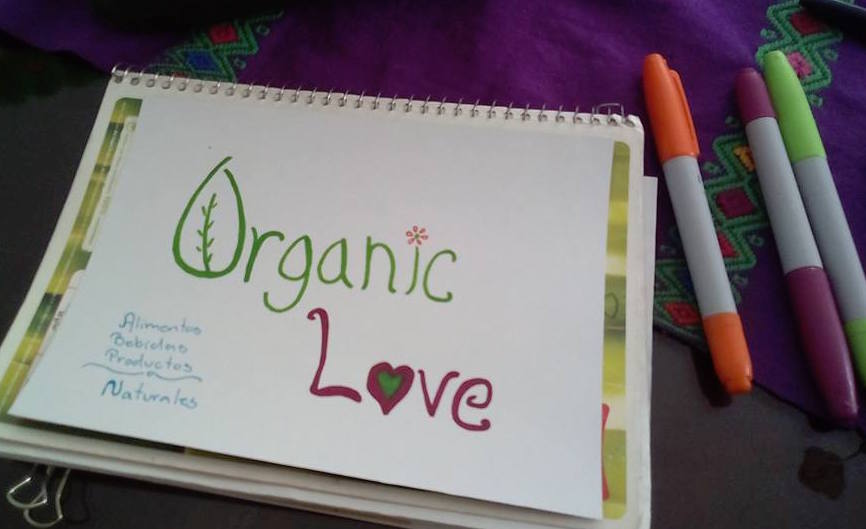 Organic
Love
Alimentos
Bebidas
Productos
Naturales